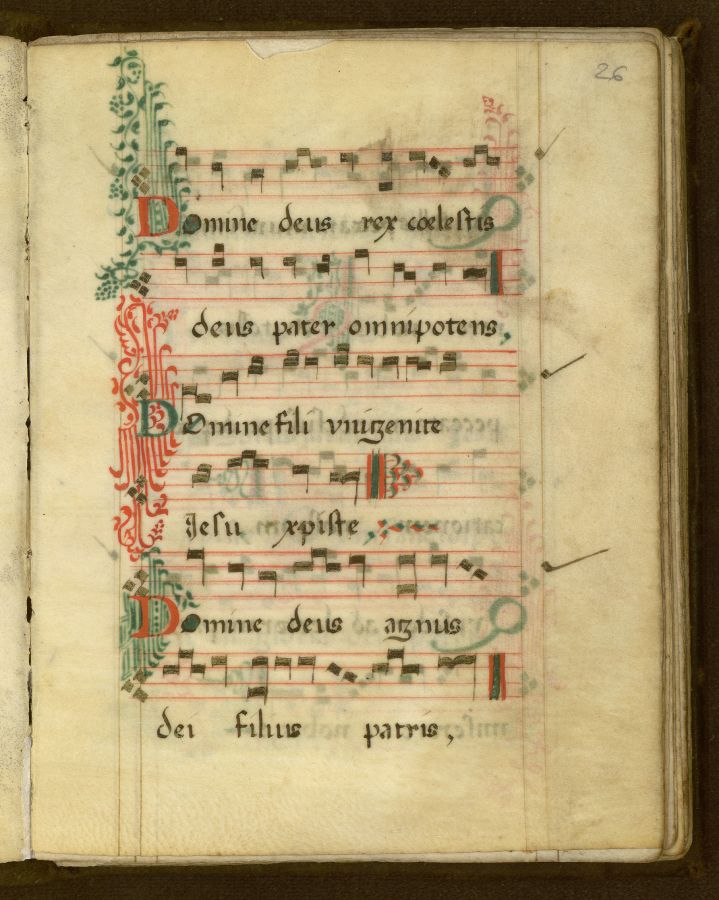 26
Domine deus rex cœlestis
deus pater omnipotens,
Domine fili vnigenite
Jesu xpiste,
Domine deus agnus
dei filius patris,